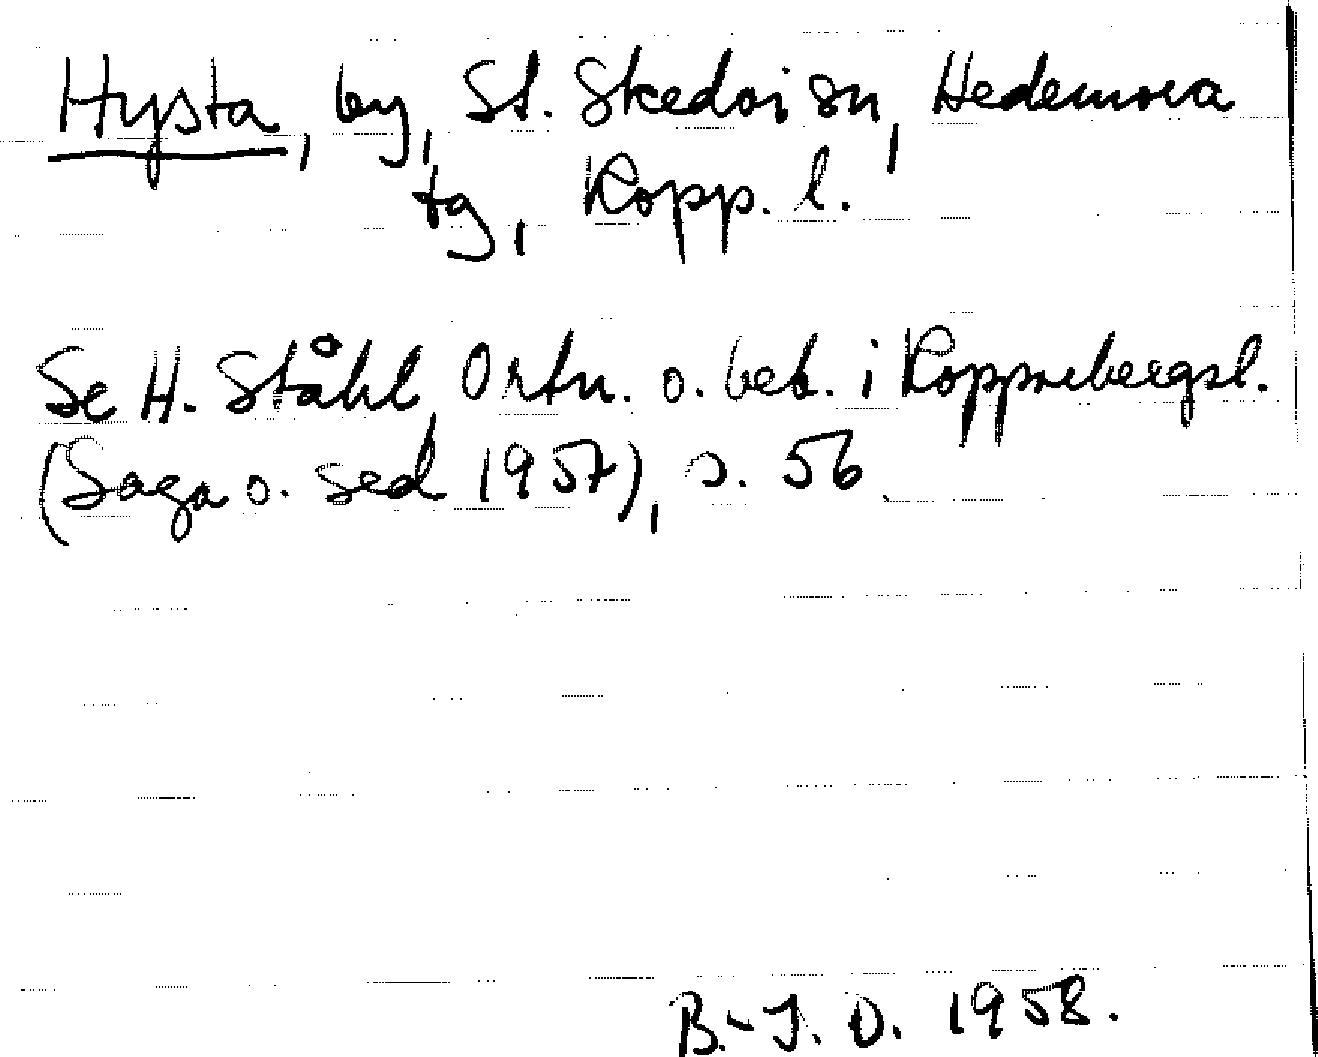 Hysta, by, St. Skedvi sn, Hedemora
tg, Kopp. l.
Se H. Ståhl, Ortn. o. beb. i Kopparbergsl.
(Saga o. sed 1957), s. 56
B.-J. D. 1958.